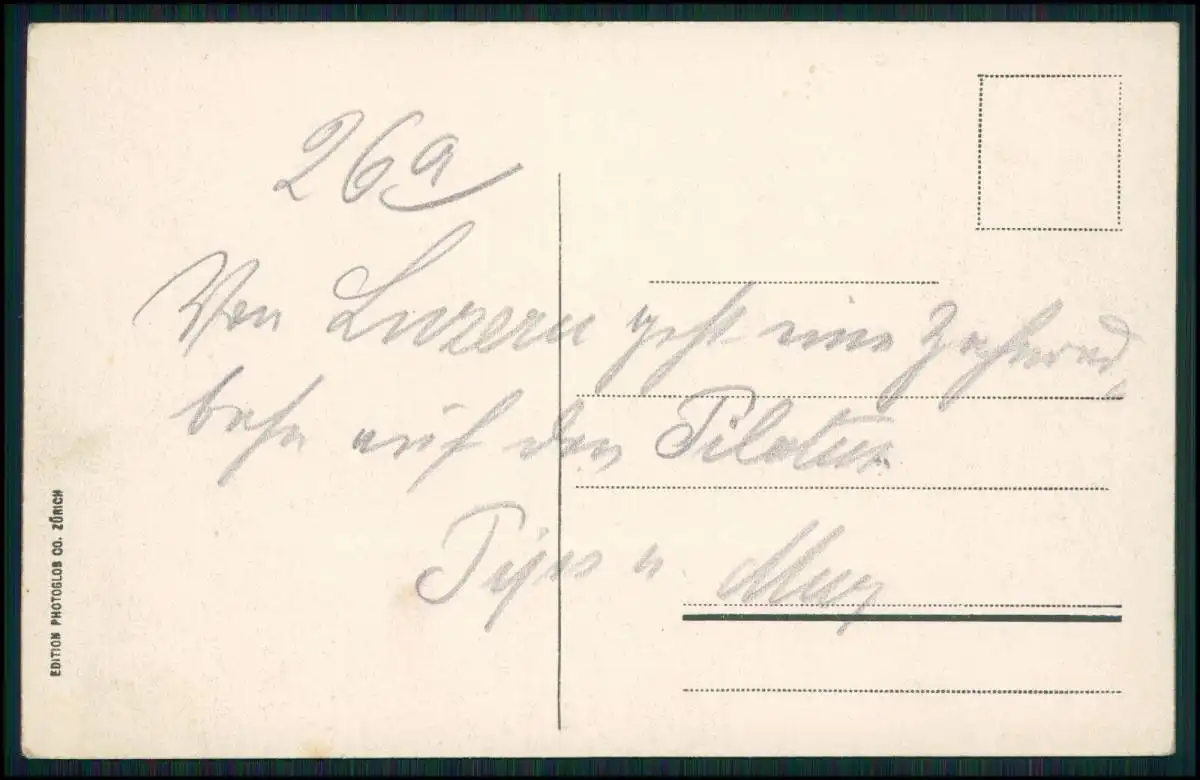 26a
Von Luzern geht eine Zahnrad,
bahn auf den Pilatus
u.
EDITION PHOTOGLOB CO. ZÜRICH